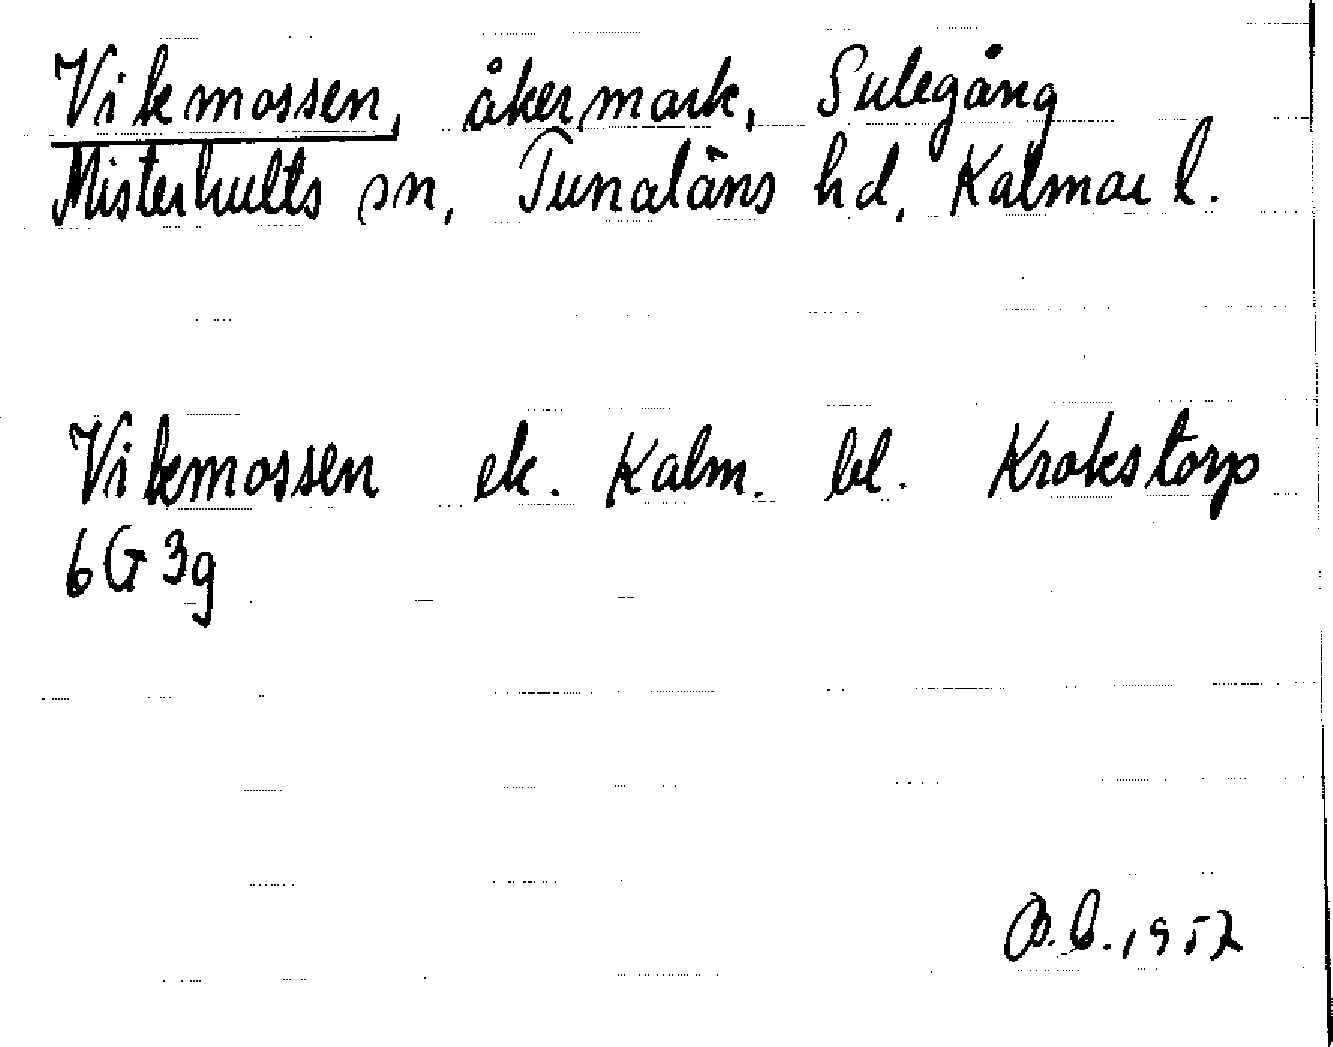 Vikmossen, åkermark, Sulegång
Misterhults sn, Tunaläns hd, Kalmar l.
Vikmossen ek. Kalm. bl. Krokstorp
6G3g
1952